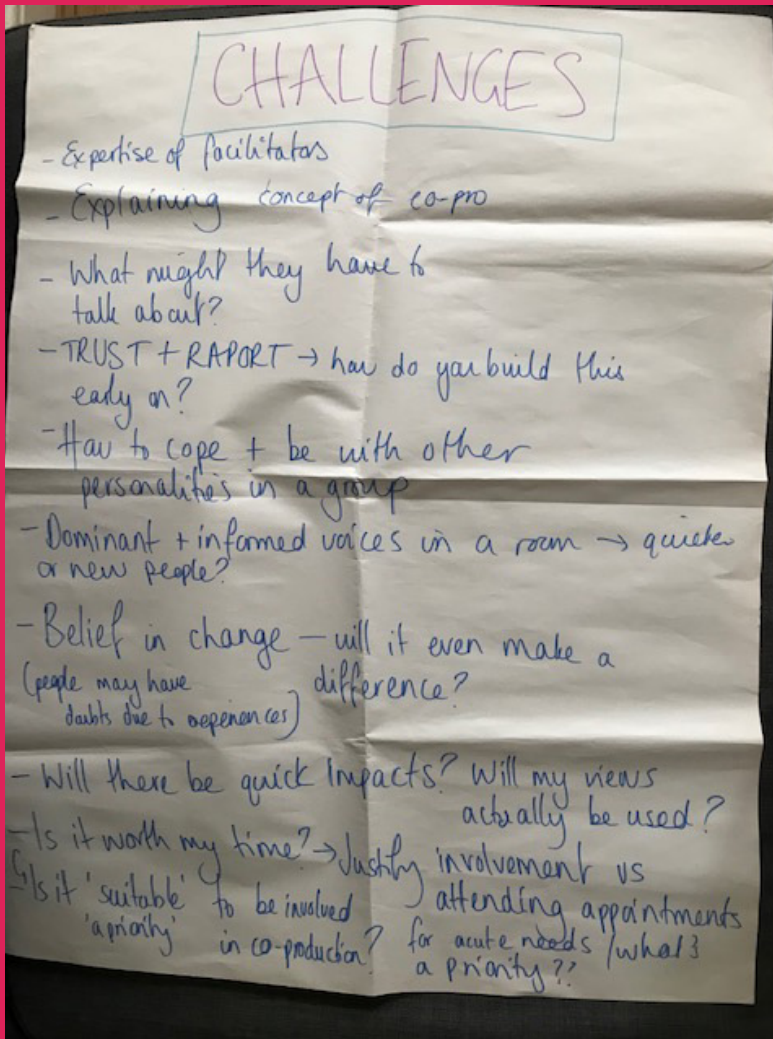 CHALLENGES
- Expertise of facilitators
- Explaining concept of co-pro
- What might they have to
talk about?
- TRUST + RAPORT → how do you build this
early on?
- How to cope + be with other
personalities in a group
- Dominant + informed voices in a room → quieter
or new people?
- Belief in change – will it even make a
difference?
(people may have
doubts due to experiences)
- Will there be quick impacts? Will my views
actually be used?
- Is it worth my time? → Justify involvement vs
attending appointments
for acute needs / what's
a priority??
- Is it 'suitable' to be involved
'a priority' in co-production?